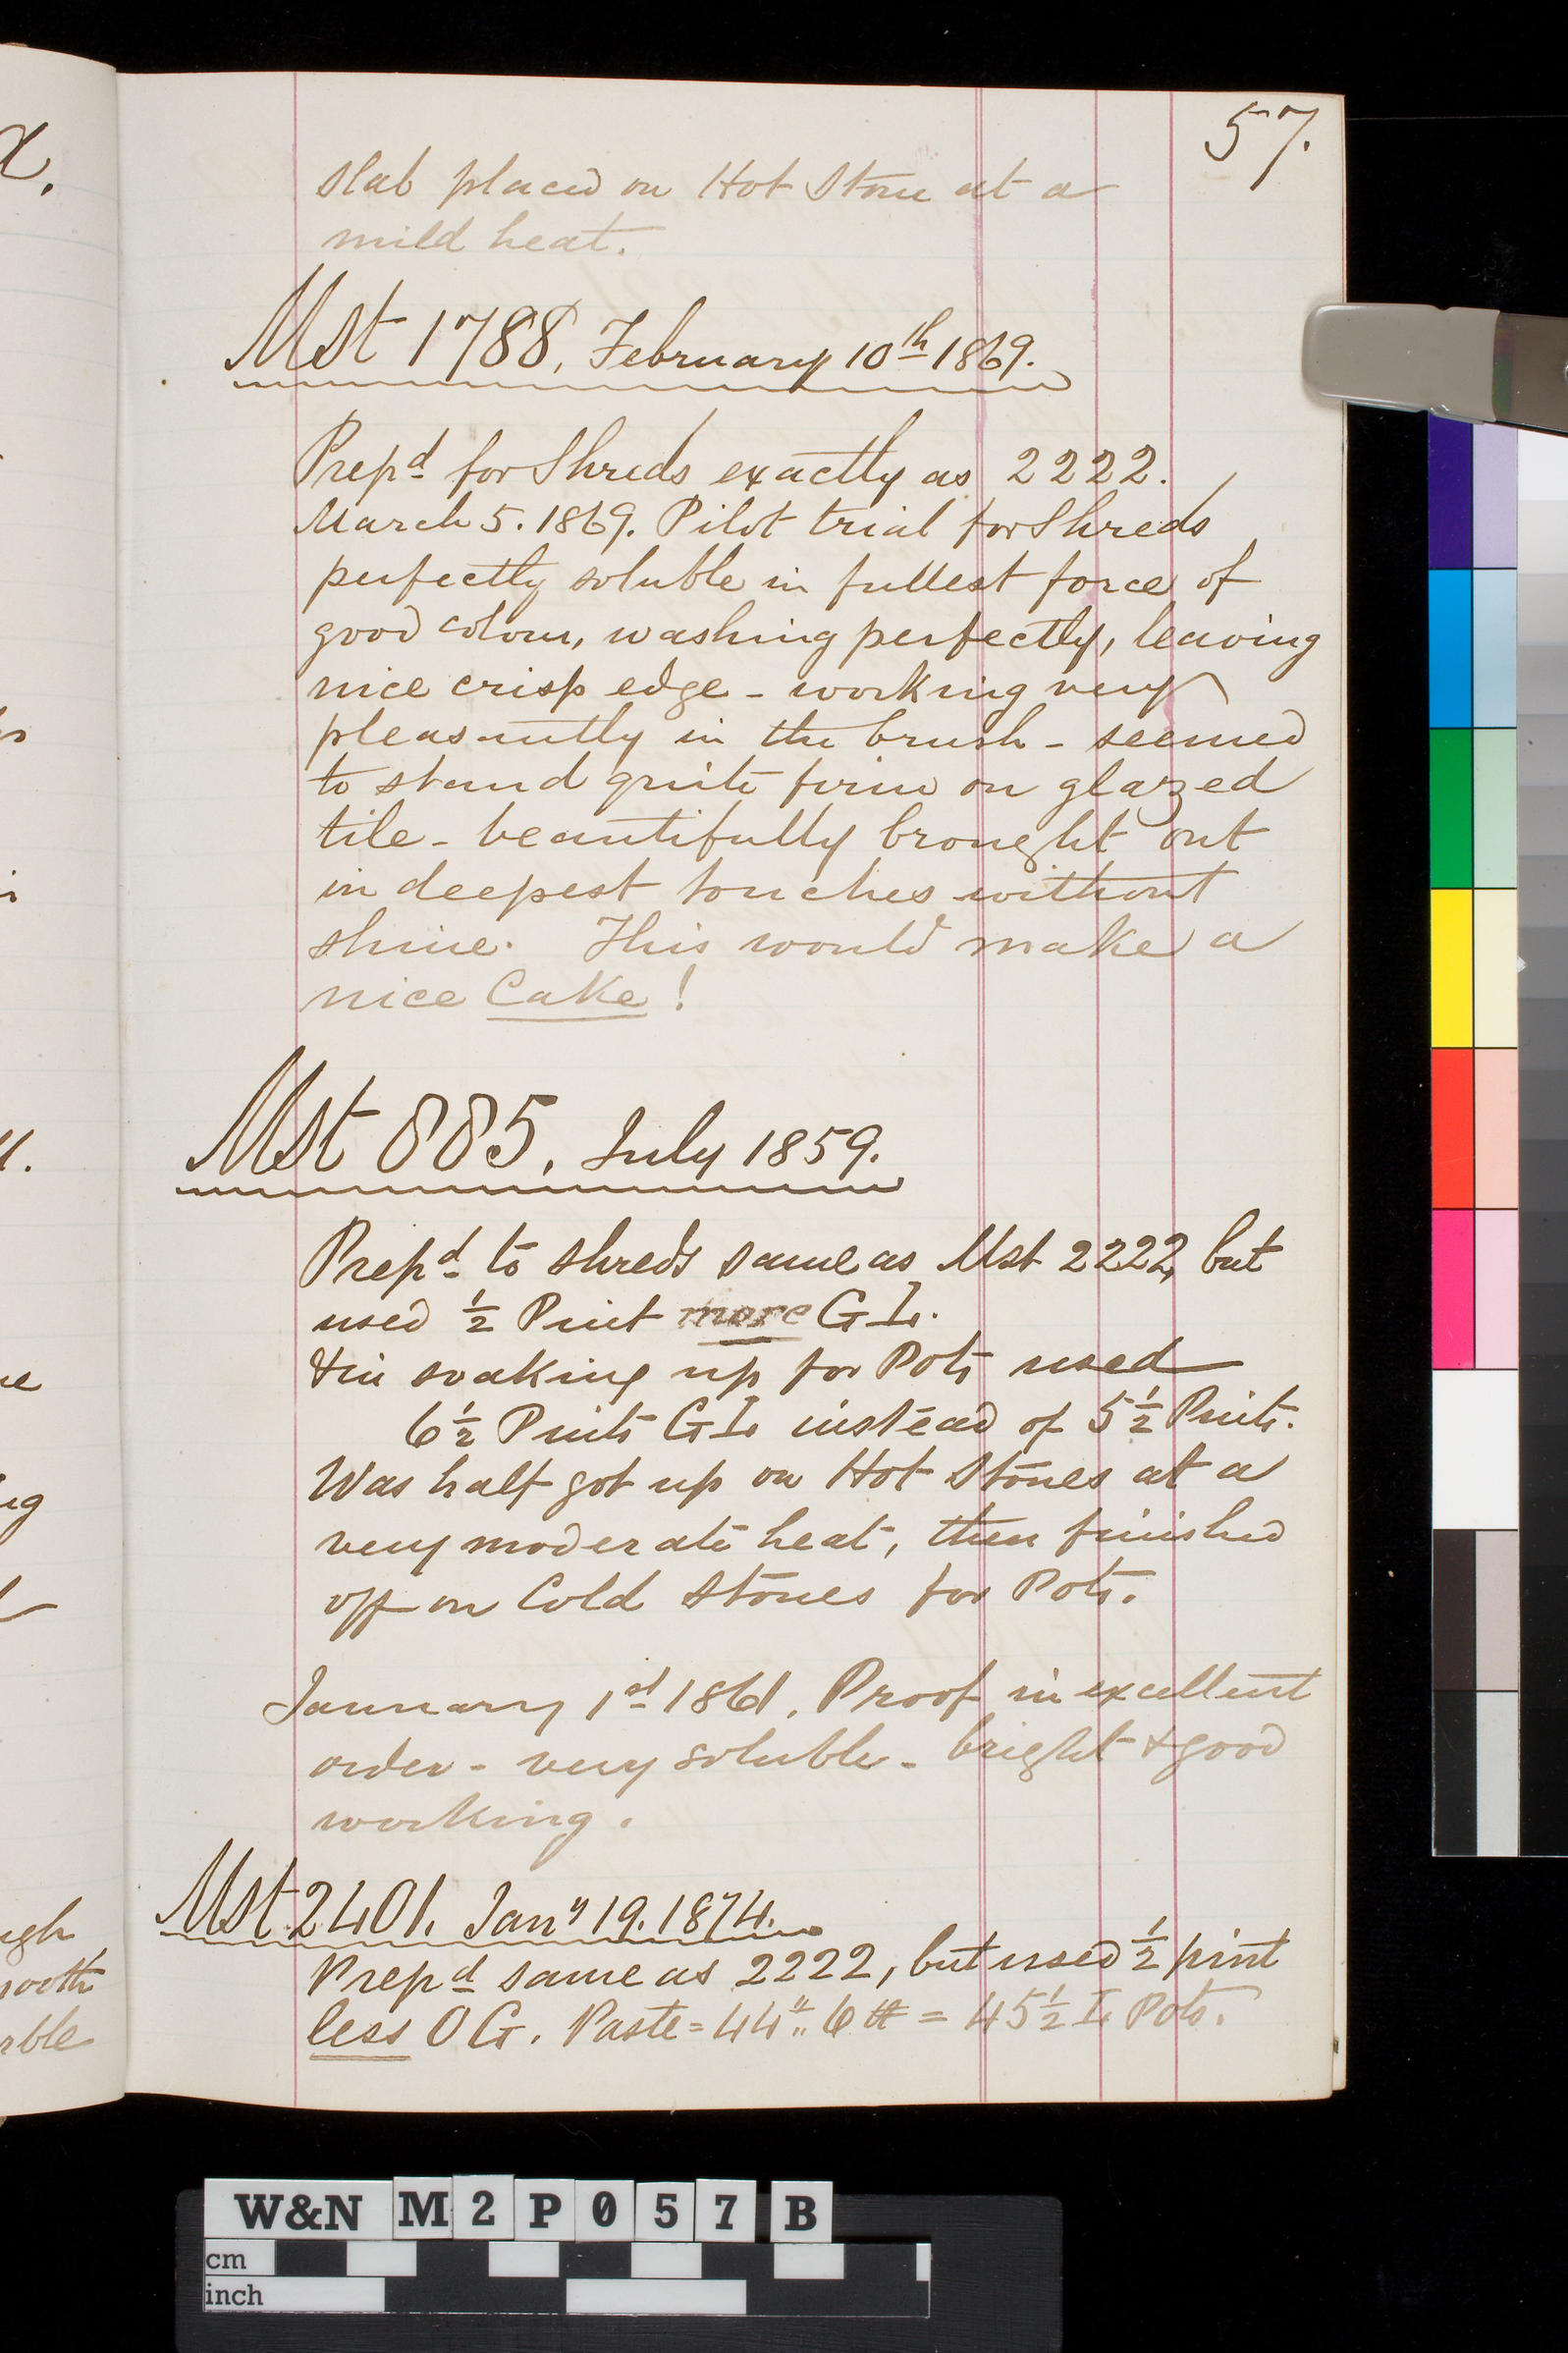 57.
slab placed on Hot Stone at a
mild heat.
Mst 1788, February 10th 1869.
Prepd for Shreds exactly as 2222.
March 5. 1869. Pilot trial for Shreds
perfectly soluble in fullest force of
good colour, washing perfectly, leaving
nice crisp edge - working very
pleasantly in the brush - seemed
to stand quite firm on glazed
tile - beautifully brought out
in deepest touches without
shine. This would make a
nice Cake!
Mst 885, July 1859.
Prepd to shreds same as Mst 2222, but
used ½ Pint more GL.
& in soaking up for Pots used
6½ Pints GL instead of 5½ Pints.
Was half got up on Hot Stones at a
very moderate heat, then finished
off on Cold Stones for Pots.
January 1st 1861. Proof in excellent
order - very soluble - bright & good
working.
Mst 2401. Jany 19. 1874.
Prepd same as 2222, but used ½ pint
less OG. Paste = 44" 6 = 45½ L Pots.
x.
ne
ugh
nooth
able
W&N M2P057B
cm
inch